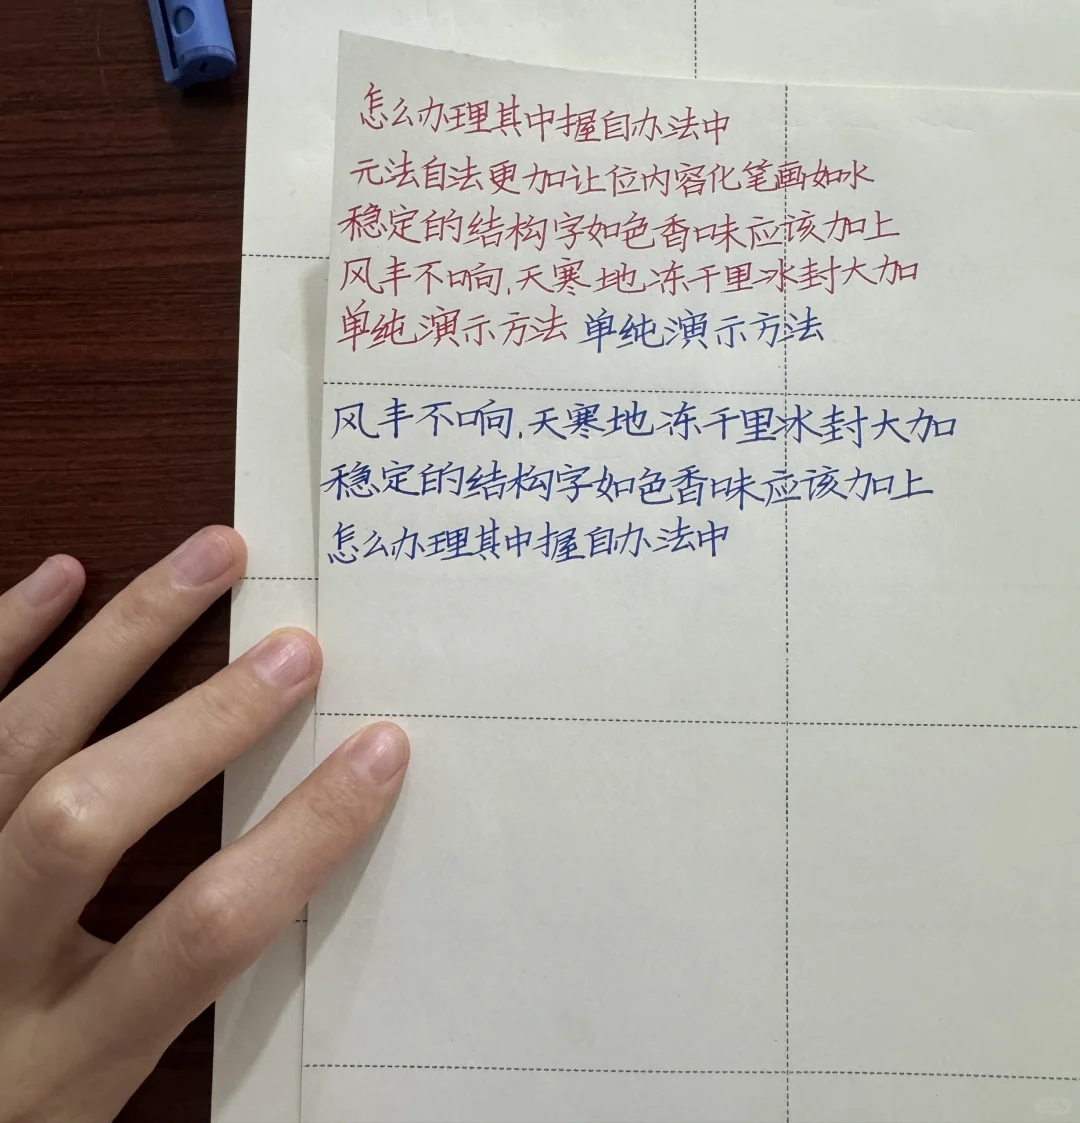 怎么办理其中握自办法中
元法自法更加让位内容化笔画如水
稳定的结构字如色香味应该加上
风丰不响,天寒地冻千里冰封大加
单纯演示方法 单纯演示方法
风丰不响,天寒地冻千里冰封大加
稳定的结构字如色香味应该加上
怎么办理其中握自办法中